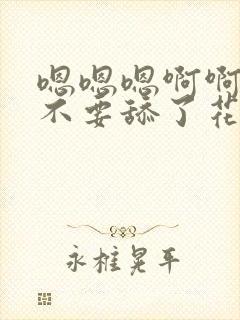 嗯嗯嗯啊啊
不要舔了花
永椎晃平